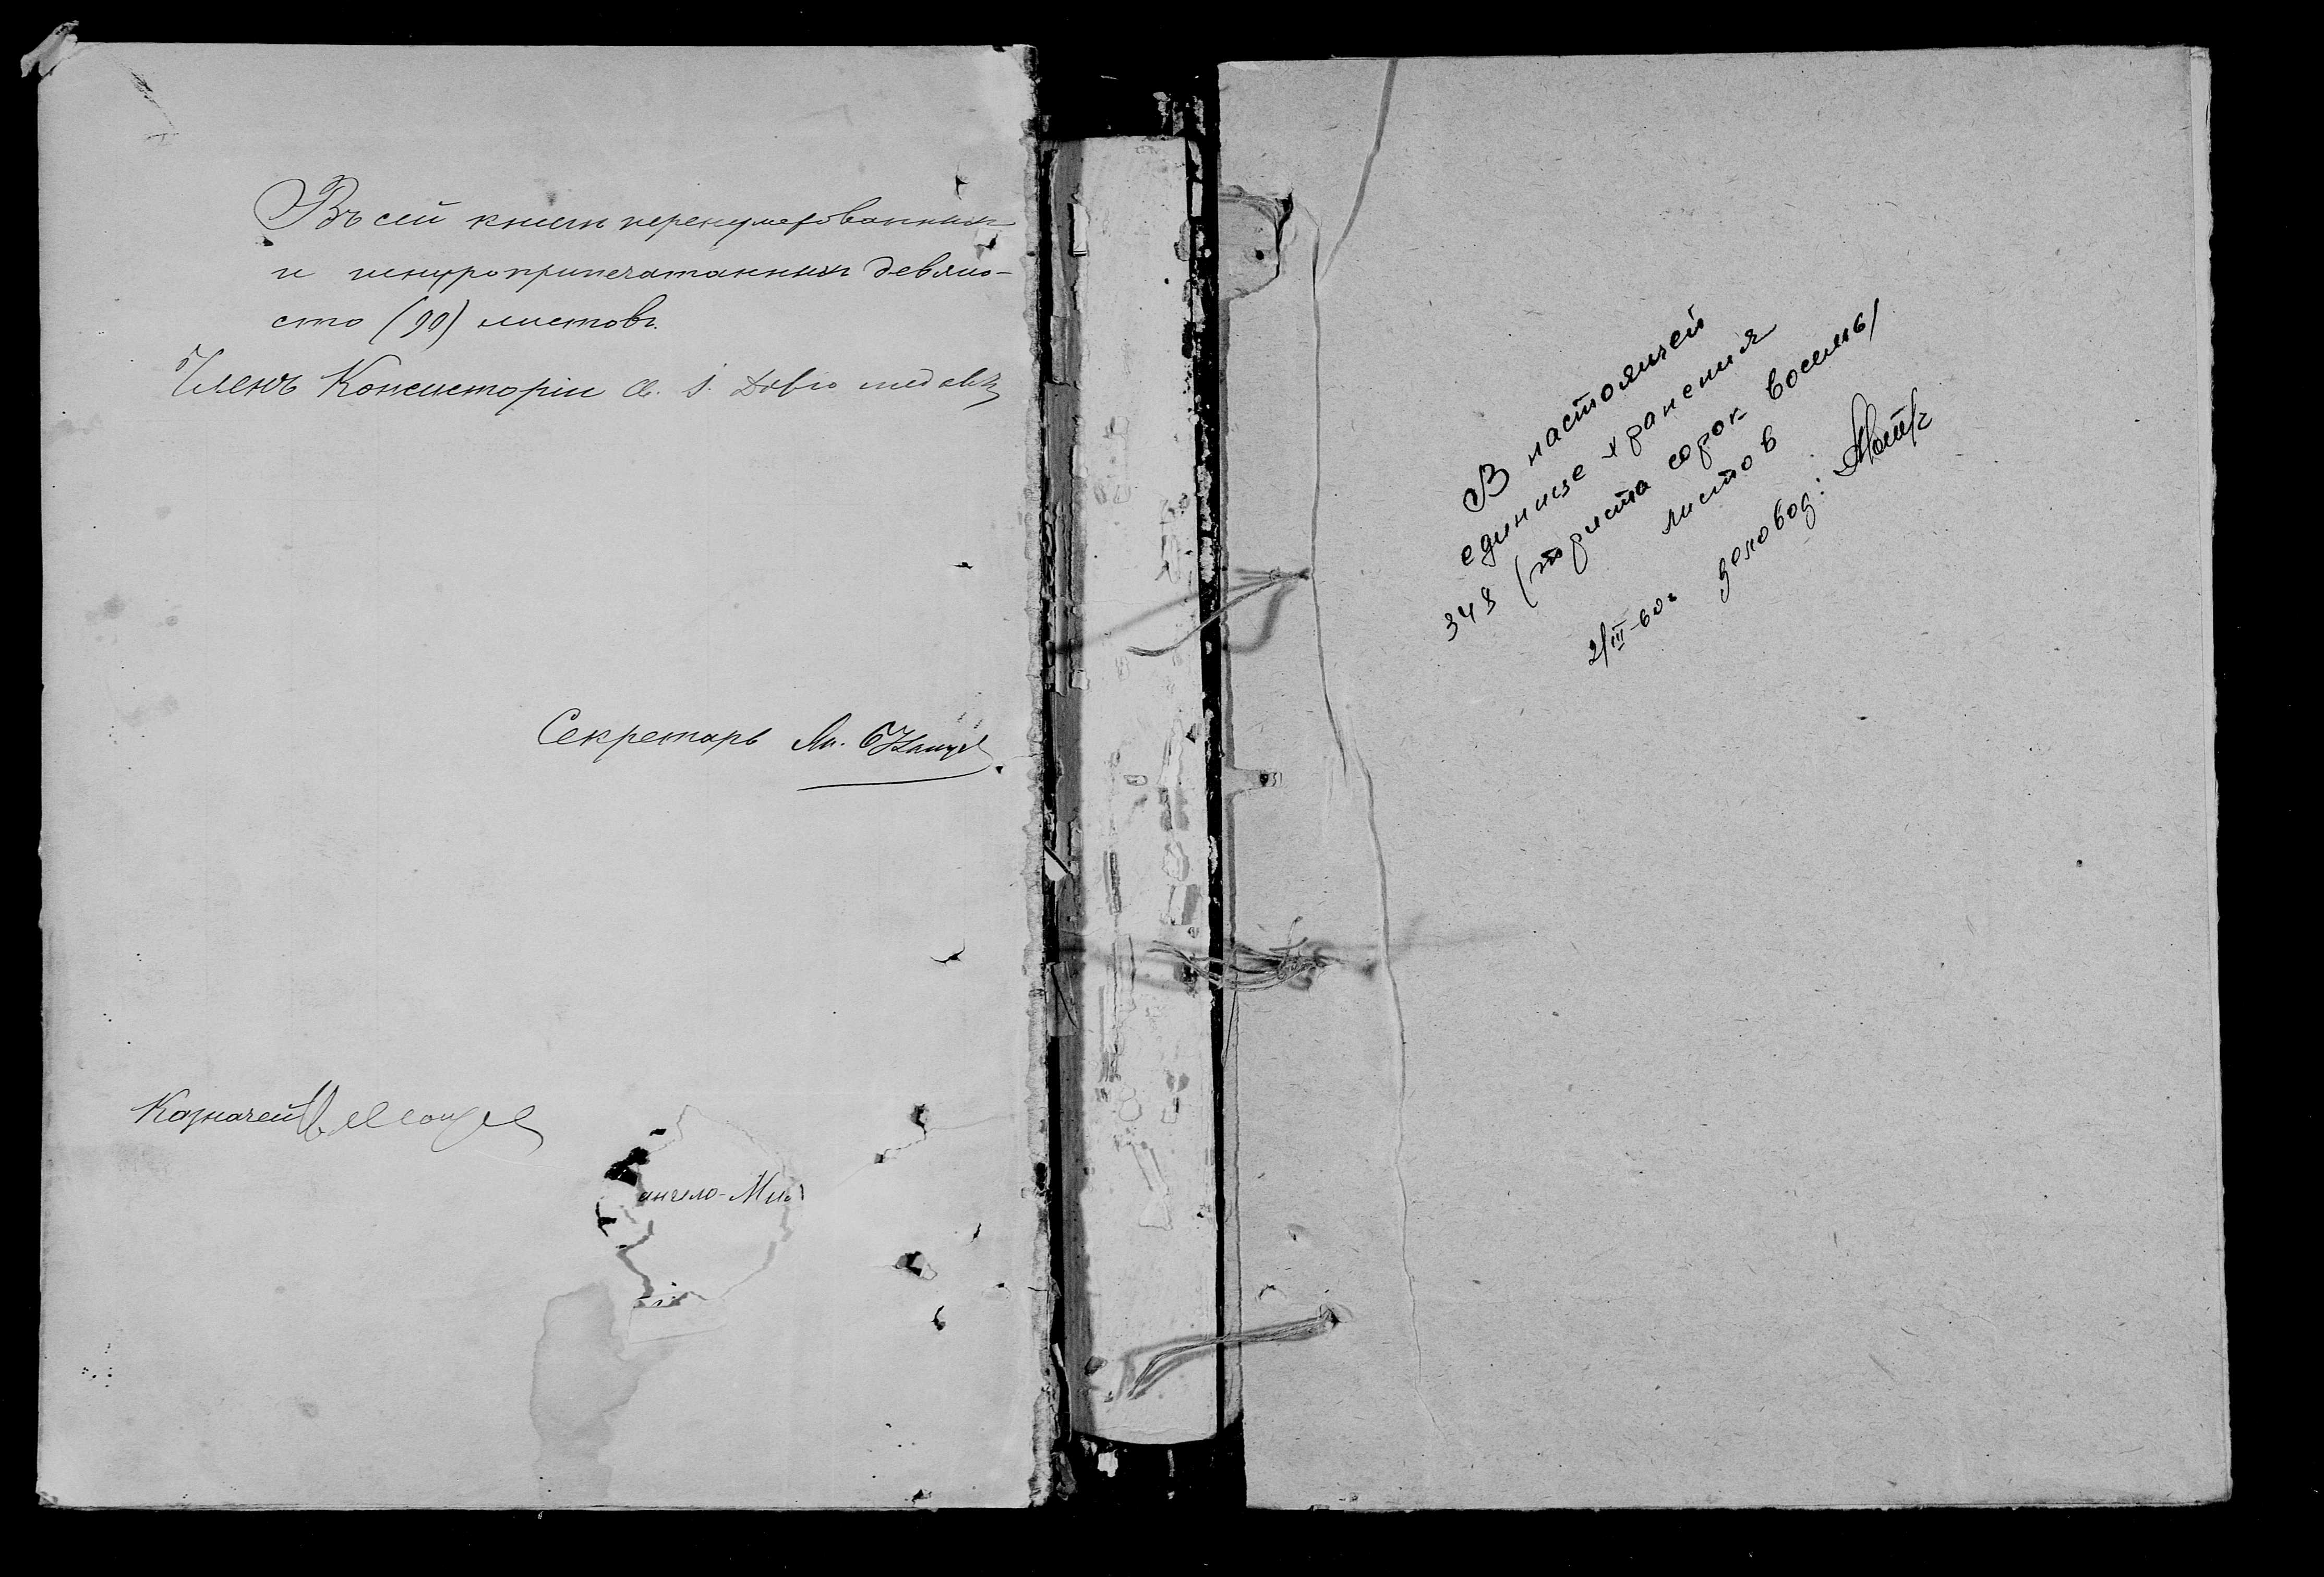 Въ сей книгѣ перенумерованныхъ
и шнуроприпечатанныхъ девяно-
сто (90) листовъ.
Членъ Консисторіи Св. І.
Секретарь
Казначей
ангело-Ми
В настоящей
единице хранения
348 (триста сорок восемь)
листов
2/III-60г деловод: